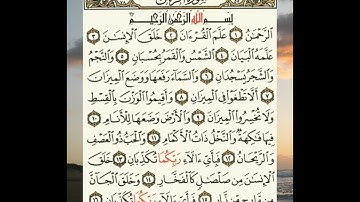 بِسْمِ اللَّهِ الرَّحْمَٰنِ الرَّحِيمِ
الرَّحْمَٰنُ ١ عَلَّمَ الْقُرْءَانَ ٢ خَلَقَ الْإِنسَٰنَ ٣
عَلَّمَهُ الْبَيَانَ ٤ الشَّمْسُ وَالْقَمَرُ بِحُسْبَانٍ ٥ وَالنَّجْمُ
وَالشَّجَرُ يَسْجُدَانِ ٦ وَالسَّمَاءَ رَفَعَهَا وَوَضَعَ الْمِيزَانَ
٧ أَلَّا تَطْغَوْا فِي الْمِيزَانِ ٨ وَأَقِيمُوا الْوَزْنَ بِالْقِسْطِ
وَلَا تُخْسِرُوا الْمِيزَانَ ٩ وَالْأَرْضَ وَضَعَهَا لِلْأَنَامِ ١٠
فِيهَا فَٰكِهَةٌ وَالنَّخْلُ ذَاتُ الْأَكْمَامِ ١١ وَالْحَبُّ ذُو الْعَصْفِ
وَالرَّيْحَانُ ١٢ فَبِأَيِّ ءَالَاءِ رَبِّكُمَا تُكَذِّبَانِ ١٣ خَلَقَ
الْإِنسَٰنَ مِن صَلْصَٰلٍ كَالْفَخَّارِ ١٤ وَخَلَقَ الْجَانَّ
مِن مَّارِجٍ مِّن نَّارٍ ١٥ فَبِأَيِّ ءَالَاءِ رَبِّكُمَا تُكَذِّبَانِ ١٦